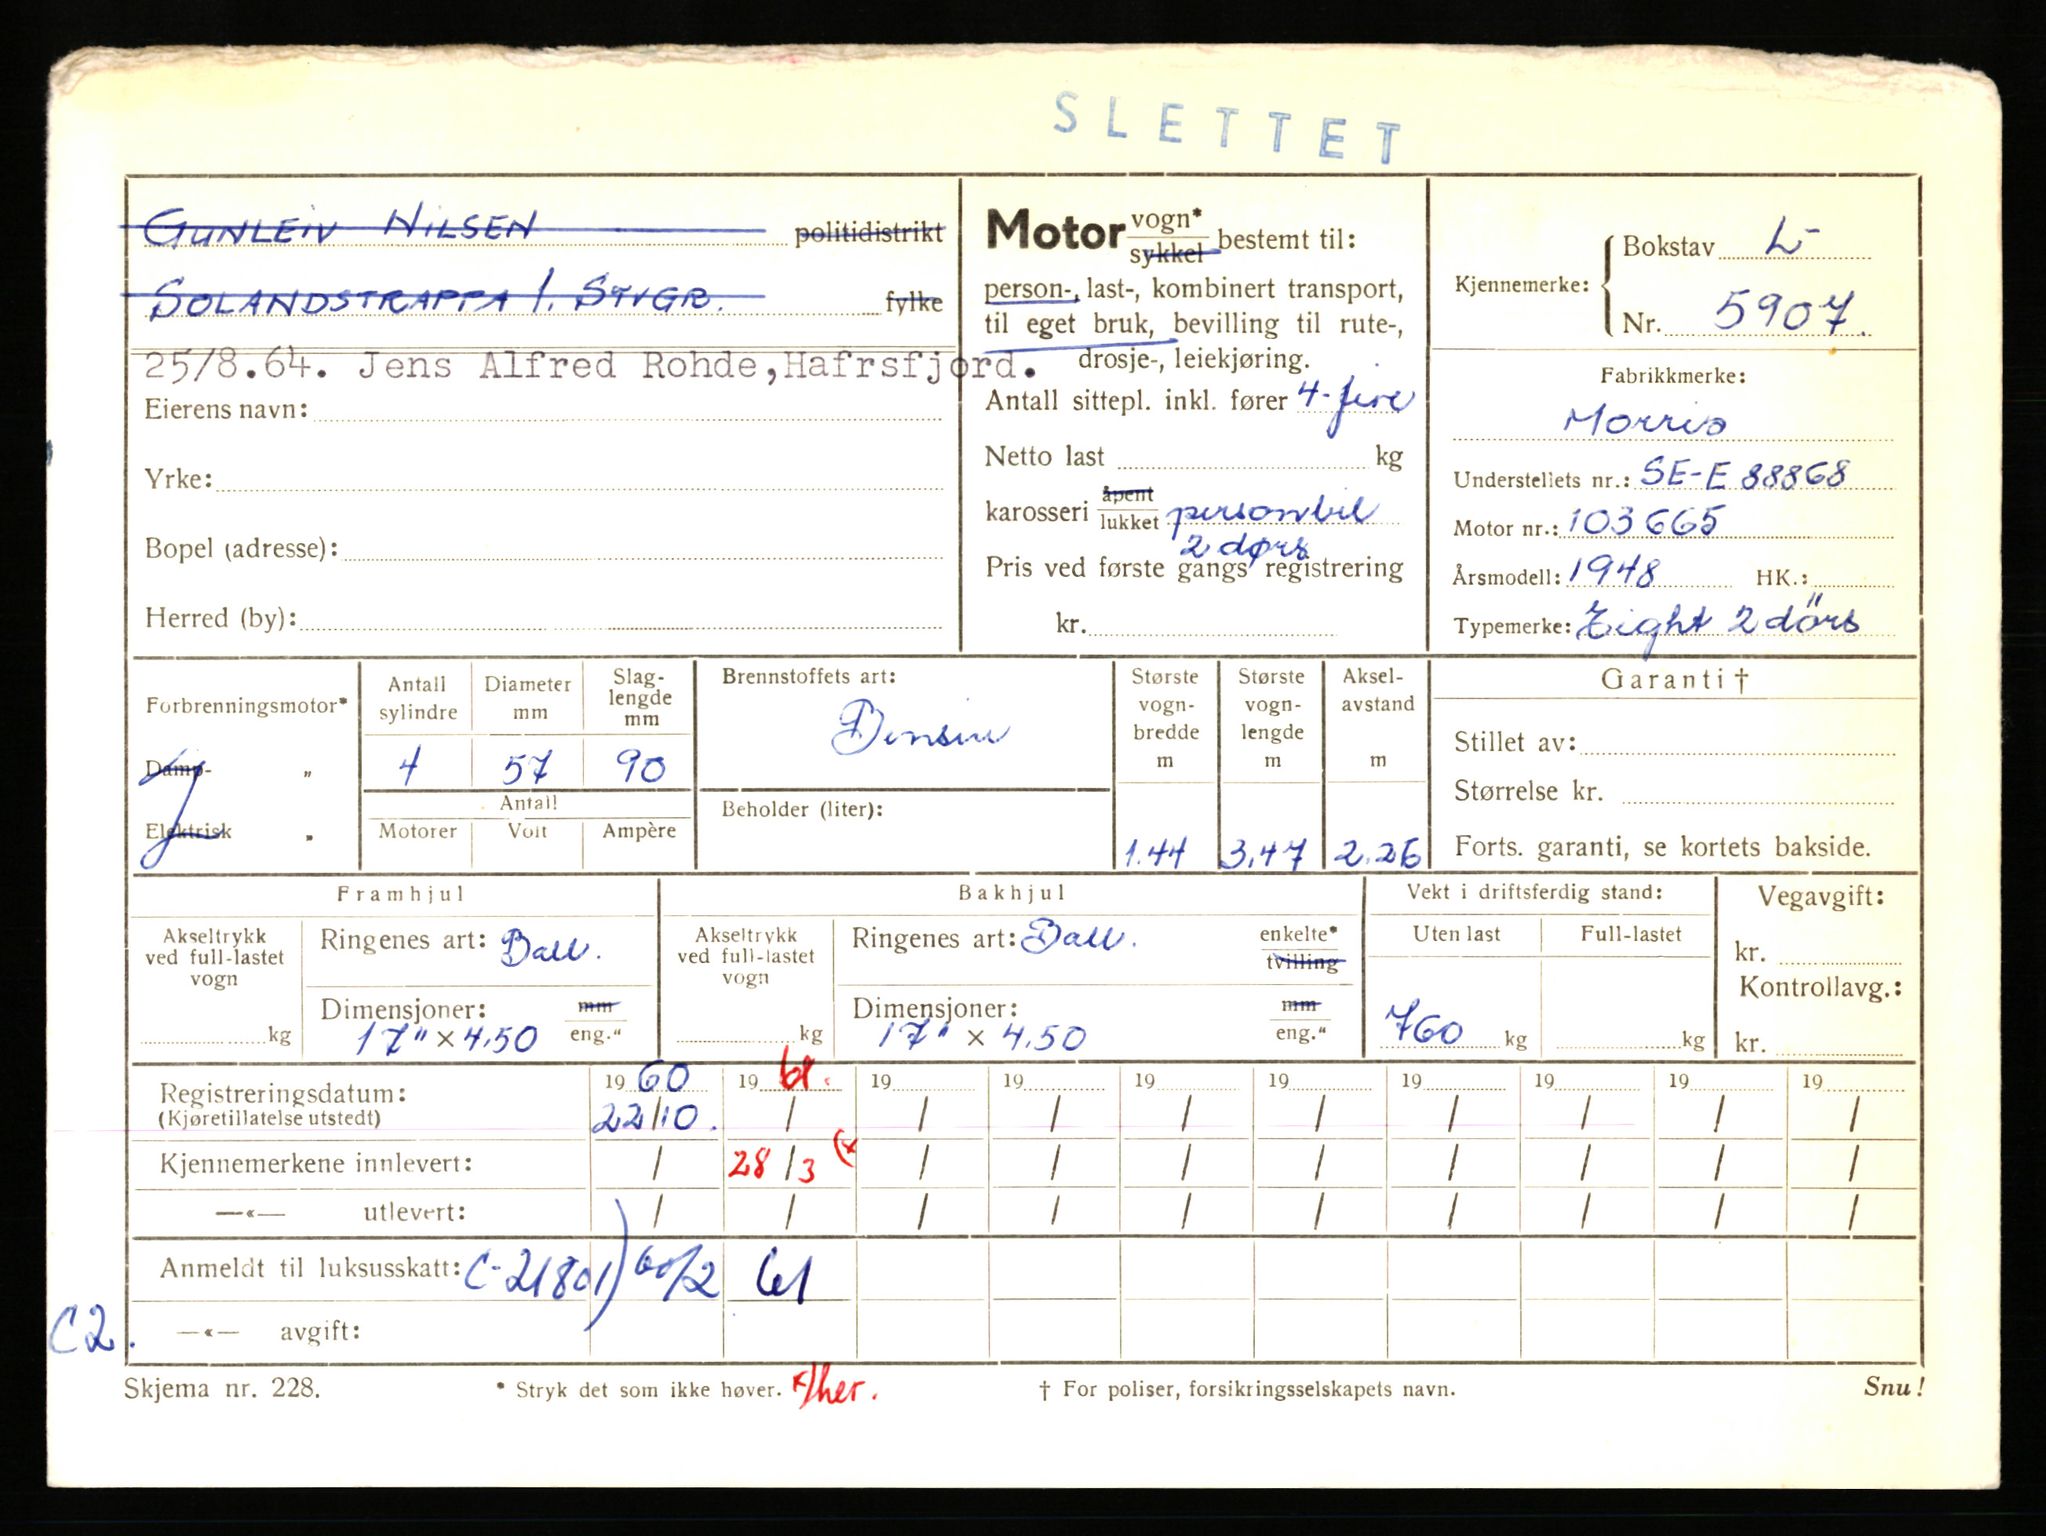 SLETTET
GUNLEIV NILSEN politidistrikt
SOLANDSTRAPPA 1. STVGR. fylke
25/8.64. Jens Alfred Rohde, Hafrsfjord.
Eierens navn:
Yrke:
Bopel (adresse):
Herred (by):
Motor vogn* sykkel bestemt til:
person-, last-, kombinert transport,
til eget bruk, bevilling til rute-,
drosje-, leiekjøring.
Antall sittepl. inkl. fører 4-fire
Netto last kg
karosseri åpent lukket personbil
2 dørs
Pris ved første gangs registrering
kr.
Kjennemerke: Bokstav L-
Nr. 5907.
Fabrikkmerke:
Morris
Understellets nr.: SE-E 88868
Motor nr.: 103665
Årsmodell: 1948 HK.:
Typemerke: Eight 2 dörs
Forbrenningsmotor*
Damp- "
Elektrisk "
Antall sylindre Diameter mm Slag-lengde mm
4 57 90
Antall
Motorer Volt Ampère
Brennstoffets art:
Bensin
Beholder (liter):
Største vogn-bredde m Største vogn-lengde m Aksel-avstand m
1.44 3,47 2.26
Garanti †
Stillet av:
Størrelse kr.
Forts. garanti, se kortets bakside.
Framhjul
Akseltrykk ved full-lastet vogn
kg
Ringenes art: Ball.
Dimensjoner: mm
17" × 4.50 eng."
Bakhjul
Akseltrykk ved full-lastet vogn
kg
Ringenes art: Ball. enkelte* tvilling
Dimensjoner: mm
17" × 4.50 eng."
Vekt i driftsferdig stand:
Uten last Full-lastet
760 kg kg
Vegavgift:
kr.
Kontrollavg.:
kr.
Registreringsdatum: 19 60 19 61. 19 19 19 19 19 19 19 19
(Kjøretillatelse utstedt) 22/10. / / / / / / / / /
Kjennemerkene innlevert: / 28/3 (x / / / / / / / /
—«— utlevert: / / / / / / / / / /
Anmeldt til luksusskatt: C-21801) 60/2 61
C2. —«— avgift:
Skjema nr. 228. * Stryk det som ikke høver. x/her. † For poliser, forsikringsselskapets navn. Snu!